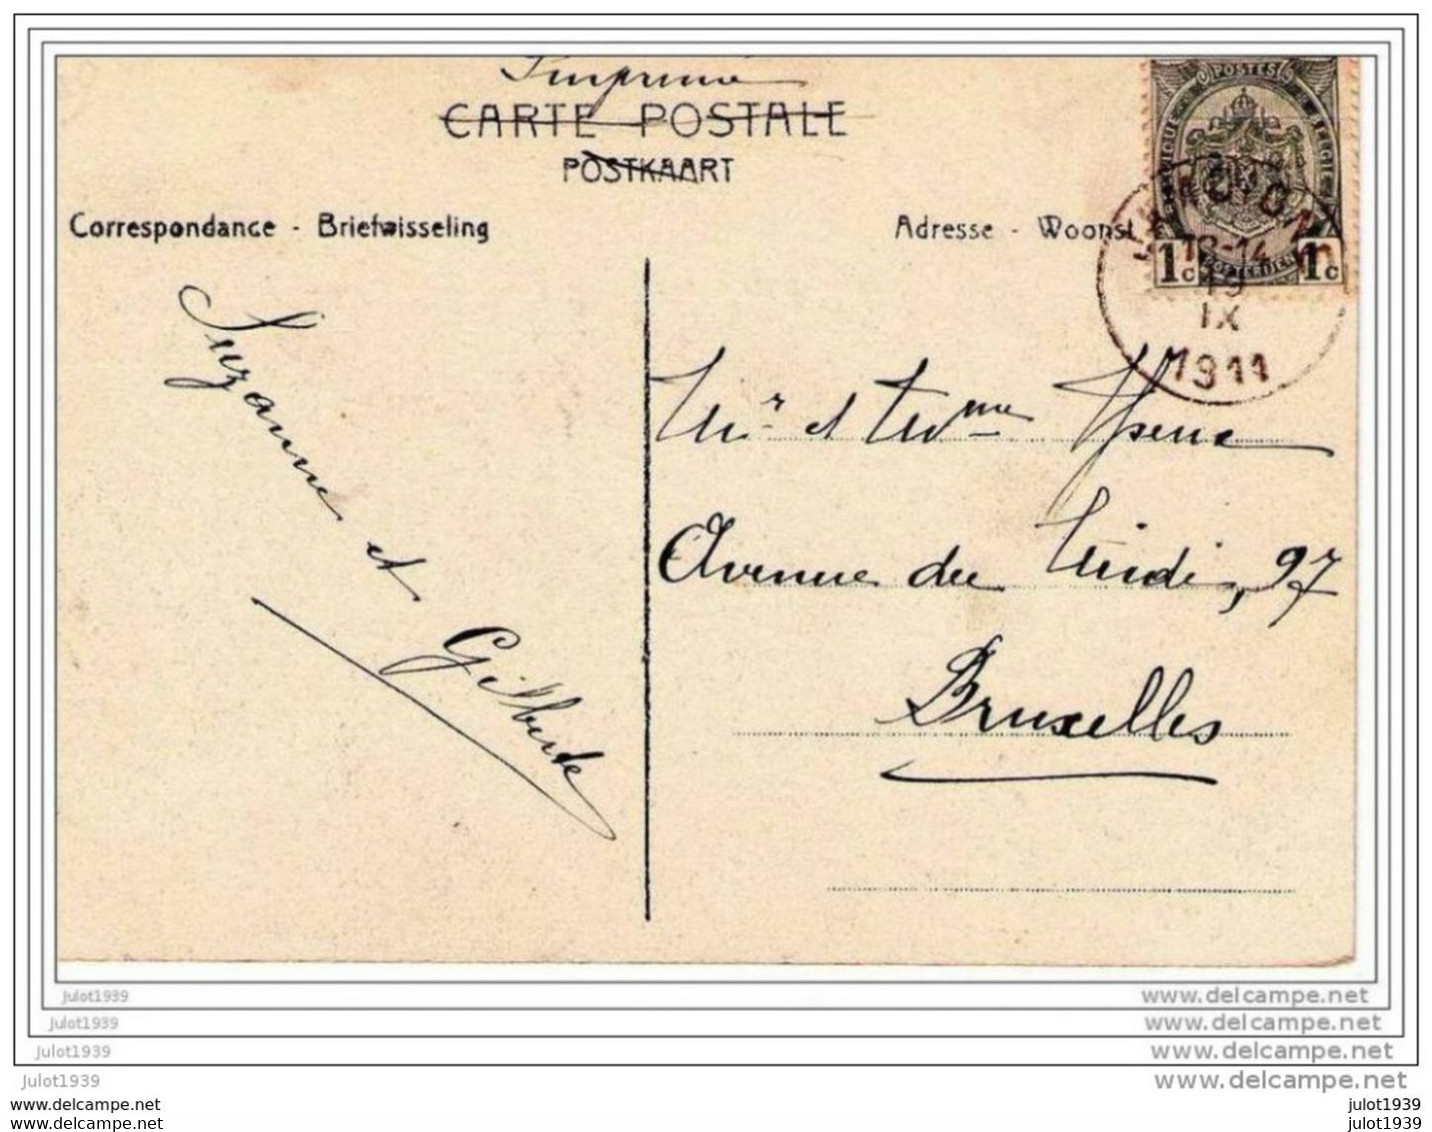 Imprimé
CARTE POSTALE
POSTKAART
Correspondance - Briefwisseling
Adresse - Woonst
POSTES
BELGIQUE
BELGIE
POSTERIJEN
1c 1c
13-14
19
IX
1911
Suzanne et Gilberte
Mr et Mme
Avenue du Midi, 97
Bruxelles
julot1939
julot1939
julot1939
julot1939
www.delcampe.net
www.delcampe.net
www.delcampe.net
www.delcampe.net
www.delcampe.net
www.delcampe.net
julot1939
julot1939